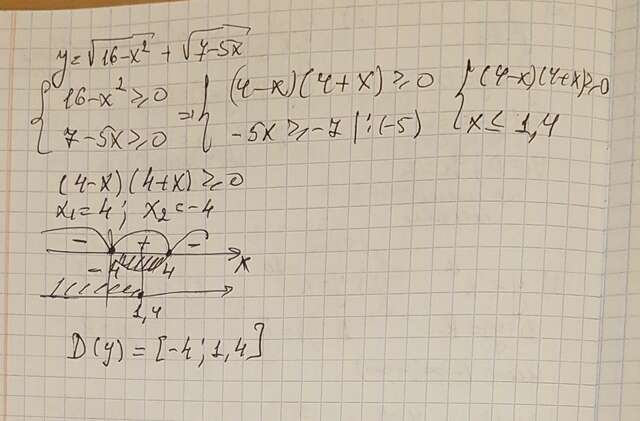 y=√16-x² + √7-5x
{16-x²≥0 {7-5x≥0 => {(4-x)(4+x)≥0 {-5x≥-7 |:(-5) {(4-x)(4+x)≥0 {x≤1,4
(4-x)(4+x)≥0
x₁=4; x₂=-4
- + -
-4 4 x
1,4
D(y)=[-4;1,4]